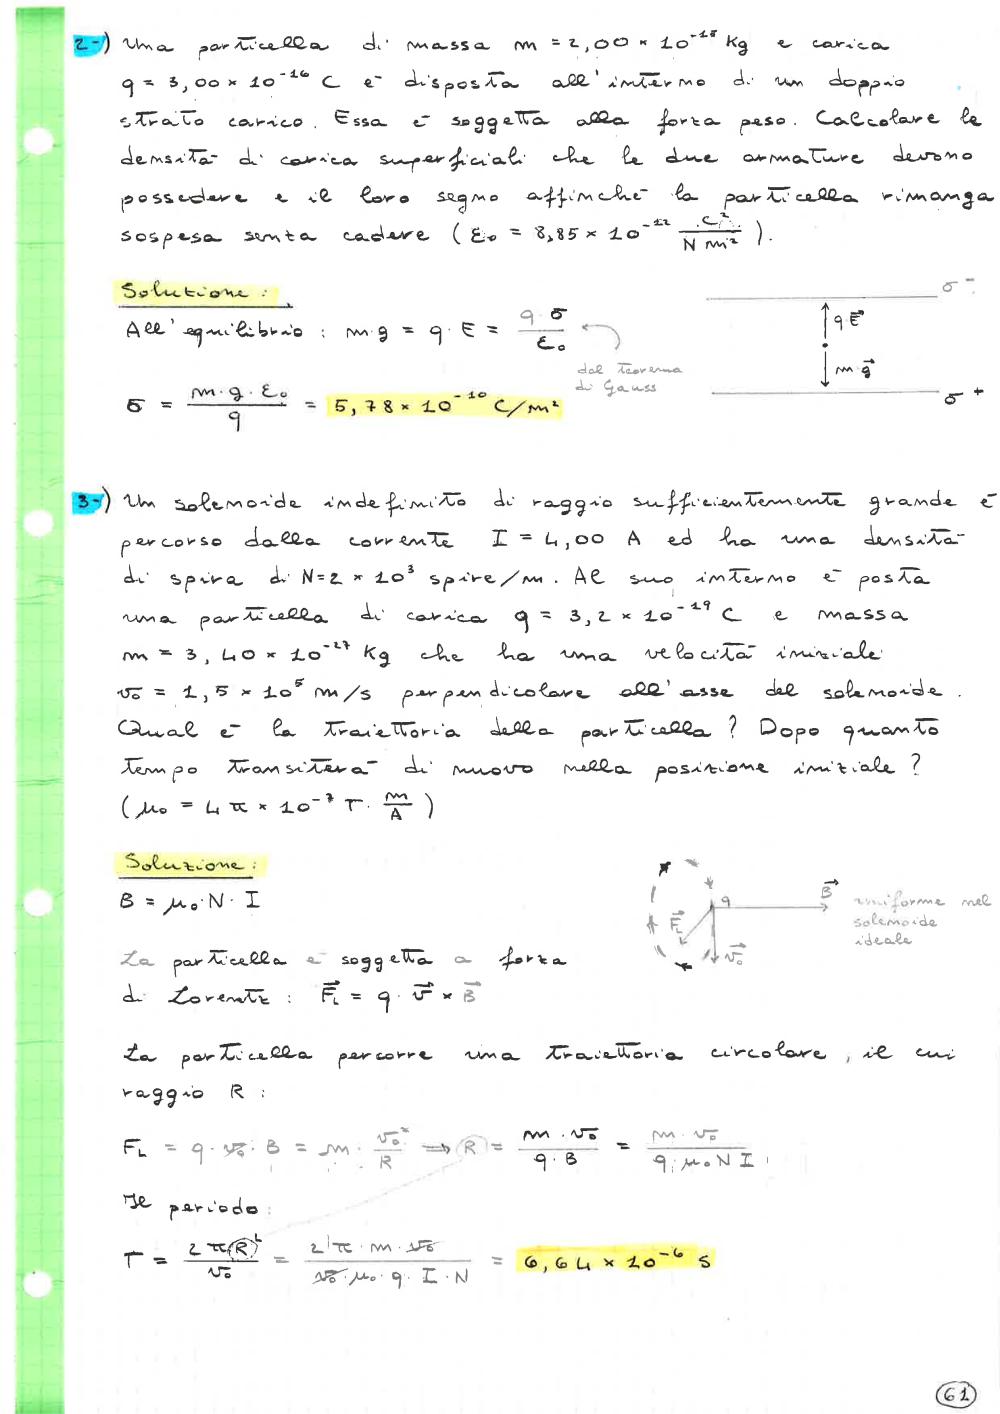 2-) Una particella di massa m = 2,00 × 10⁻¹⁵ Kg e carica
q = 3,00 × 10⁻¹⁶ C è disposta all'interno di un doppio
strato carico. Essa è soggetta alla forza peso. Calcolare le
densità di carica superficiali che le due armature devono
possedere e il loro segno affinché la particella rimanga
sospesa senza cadere (ε₀ = 8,85 × 10⁻¹² C²/N m²).
Soluzione:
All'equilibrio: m·g = q·E = q·σ/ε₀
dal teorema
di Gauss
σ = m·g·ε₀/q = 5,78 × 10⁻¹⁰ C/m²
σ⁻
qE⃗
m·g⃗
σ⁺
3-) Un solenoide indefinito di raggio sufficientemente grande è
percorso dalla corrente I = 4,00 A ed ha una densità
di spira di N=2 × 10³ spire/m. Al suo interno è posta
una particella di carica q = 3,2 × 10⁻¹⁹ C e massa
m = 3,40 × 10⁻²⁷ Kg che ha una velocità iniziale
v₀ = 1,5 × 10⁵ m/s perpendicolare all'asse del solenoide.
Qual è la traiettoria della particella? Dopo quanto
tempo transiterà di nuovo nella posizione iniziale?
(μ₀ = 4π × 10⁻⁷ T · m/A)
Soluzione:
B = μ₀·N·I
q
B⃗
F⃗L
v⃗₀
uniforme nel
solenoide
ideale
La particella è soggetta a forza
di Lorentz: F⃗L = q · v⃗ × B⃗
La particella percorre una traiettoria circolare, il cui
raggio R:
FL = q · v₀ · B = m · v₀²/R ⟹ R = m · v₀/q · B = m · v₀/q · μ₀ N I
Il periodo:
T = 2πR/v₀ = 2π · m · v₀/v₀ · μ₀ · q · I · N = 6,64 × 10⁻⁶ s
61